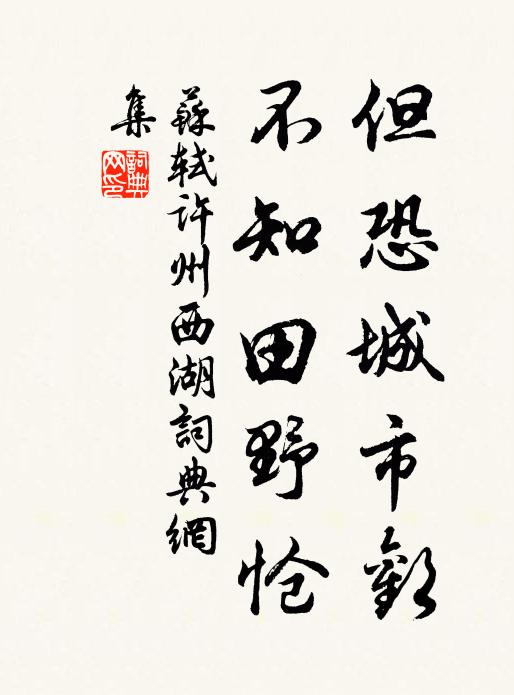 但恐城市歡
不知田野愴
蘇軾許州西湖詞典網
集
詞典网印